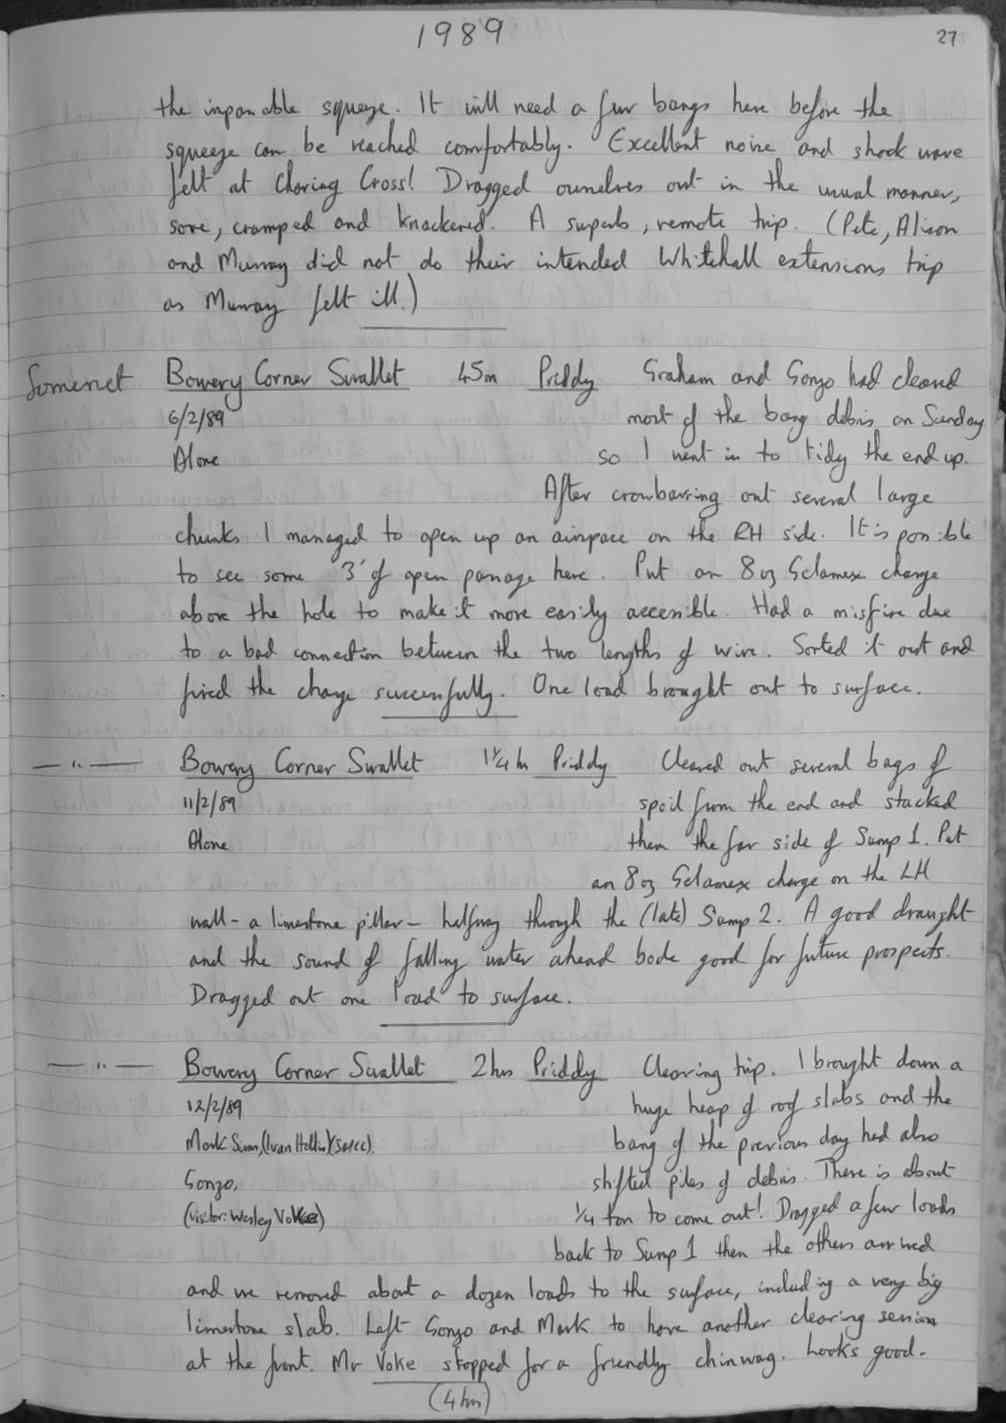 1989
27
the impassable squeeze. It will need a few bangs here before the
squeeze can be reached comfortably. Excellent noise and shock wave
felt at Charing Cross! Dragged ourselves out in the usual manner,
sore, cramped and knackered. A superb, remote trip. (Pete, Alison
and Murray did not do their intended Whitehall extensions trip
as Murray felt ill.)
Somerset Bowery Corner Swallet 45m Priddy Graham and Gonzo had cleared
6/2/89 most of the bang debris on Sunday
Alone so I went in to tidy the end up.
After crowbarring out several large
chunks I managed to open up an airspace on the RH side. It is possible
to see some 3' of open passage here. Put an 8oz Gelamex charge
above the hole to make it more easily accessible. Had a misfire due
to a bad connection between the two lengths of wire. Sorted it out and
fired the charge successfully. One load brought out to surface.
—"— Bowery Corner Swallet 1¼h Priddy Cleared out several bags of
11/2/89 spoil from the end and stacked
Alone them the far side of Sump 1. Put
an 8oz Gelamex charge on the LH
wall - a limestone pillar - halfway through the (late) Sump 2. A good draught
and the sound of falling water ahead bode good for future prospects.
Dragged out one load to surface.
—"— Bowery Corner Swallet 2hrs Priddy Clearing trip. I brought down a
12/2/89 huge heap of roof slabs and the
Mark (Ivan Hollis) bang of the previous day had also
Gonzo, shifted piles of debris. There is about
(visitor: Wesley Voke) ¼ ton to come out! Dragged a few loads
back to Sump 1 then the others arrived
and we removed about a dozen loads to the surface, including a very big
limestone slab. Left Gonzo and Mark to have another clearing session
at the front. Mr Voke stopped for a friendly chinwag. Looks good.
(4hrs)